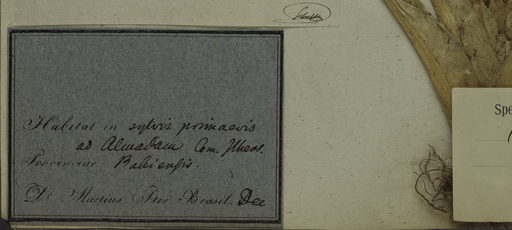 Habitat in sylvis primaevis
ad Almadam Com. Ilheos.
Provinciae Bahiensis.
Dr. Martius Iter Brasil. Dec
Spe